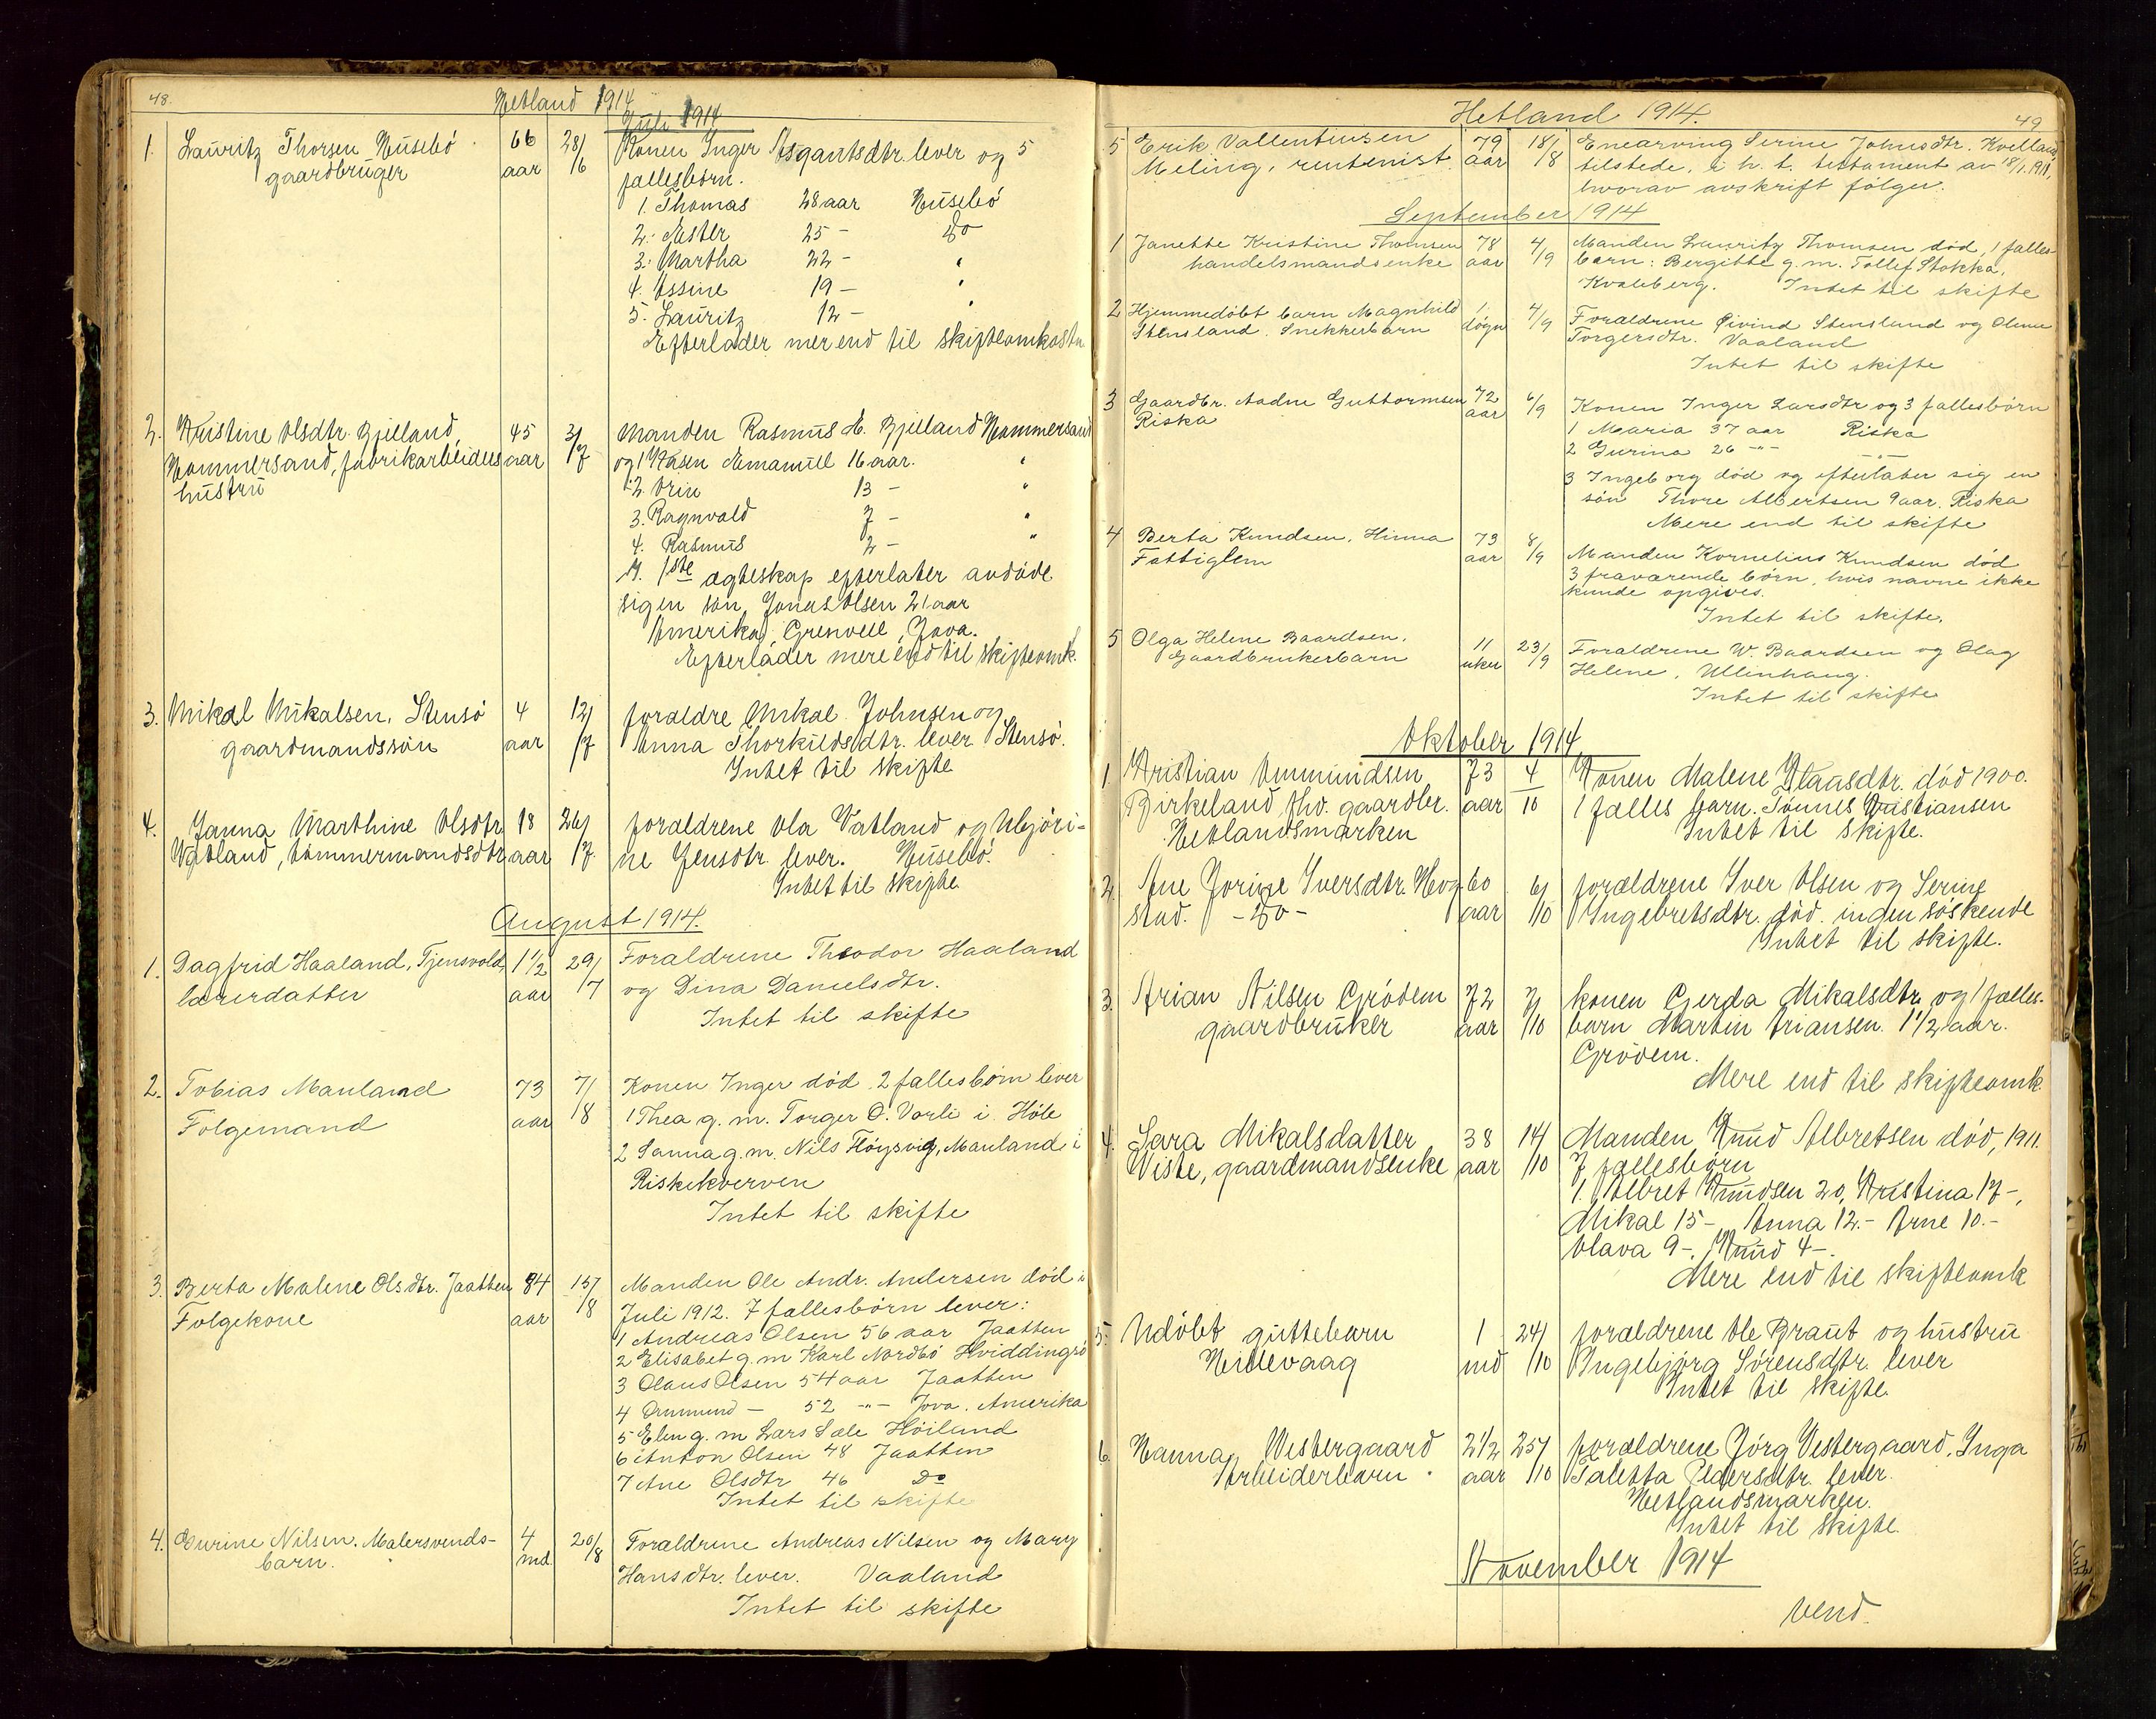 48.
Hetland 1914
Juli 1914
1. Lauritz Thorsen Husebö 66 28/6 Konen Inger Asgautsdtr. lever og 5
gaardbruger aar fællesbørn.
1. Thomas 28 aar Husebö
2. Ester 25 - do
3. Martha 22 - "
4. Ossine 19 - "
5. Lauritz 12 - "
Efterlader mer end til skifteomkostn
2. Kristine Olsdtr. Gjilland, 45 3/7 Manden Rasmus H. Gjilland Hommersand
Hommersand, fabrikarbeiders aar og 1 Hasen Emanuel 16 aar. "
hustru 2. Orin 13 - "
3. Ragnvald 7 - "
4. Rasmus 2 - "
M. 1ste ægteskap efterlater avdöde
sig en sön, Jonas Olsen 21 aar
Amerika, Grenvell, Jova.
Efterlader mere end til skifteomk.
3. Mikal Mikalsen, Stensö 4 12/7 forældre Mikal Johnsen og
gaardmandssön aar Anna Thorkildsdtr. lever Stensö.
Intet til skifte
4. Janna Marthine Olsdtr 18 26/7 forældrene Ola Vatland og Abjöri-
Vatland, tömmermandsdtr aar ne Jensdtr. lever. Husebö.
Intet til skifte
August 1914.
1. Dagfrid Haaland, Tjensvold, 1 1/2 29/7 Forældrene Theodor Haaland
lærerdatter aar og Dina Danielsdtr.
Intet til skifte
2. Tobias Mauland 73 7/8 Konen Inger död. 2 fællesbörn lever
Folgemand aar 1 Thea g. m. Torger O. Vorli i Höle
2 Sanna g. m. Nils Höysvig, Mauland i
Riskekverven
Intet til skifte
3. Berta Malene Olsdtr. Jaatten 84 15/8 Manden Ole Andr. Andersen död i
Folgekone aar Juli 1912. 7 fællesbörn lever:
1 Andreas Olsen 56 aar Jaatten
2 Elisabet g. m Karl Nordbö Hviddingsö
3 Olaus Olsen 54 aar Jaatten
4 Ommund - 52 -"- Jova. Amerika
5 Elen g. m Lars Sæle Höiland
6 Anton Olsen 48 Jaatten
7 Ane Olsdtr 46 Do
Intet til skifte
4. Gurine Nilsen. Malersvends- 4 20/8 Forældrene Andreas Nilsen og Mary
barn. md. Hansdtr. lever. Vaaland
Intet til skifte
Hetland 1914. 49
5 Erik Vallentinsen 79 18/8 Enearving Serine Johnsdtr. Kvelland
Meling, rentenist. aar tilstede, i h. t. testament av 18/1.1911,
hvorav avskrift fölger.
September 1914
1 Janette Kristine Thomsen 78 4/9 Manden Lauritz Thomsen död, 1 fælles-
handelsmandsenke aar barn: Bergitte g. m. Tollef Stokka,
Kvaleberg. Intet til skifte
2 Hjemmedöbt barn Magnhild 1 4/9 Forældrene Öivind Stensland og Oline
Stensland. Snekkerbarn dögn Torgersdtr. Vaaland
Intet til skifte
3 Gaardbr. Aadne Guttormsen 72 6/9 Konen Inger Larsdtr og 3 fællesbörn
Riska aar 1 Maria 37 aar Riska
2 Gurina 26 -"- -"-
3 Ingeborg död og efterlater sig en
sön Thore Albertsen 9 aar, Riska
Mere end til skifte
4 Berta Knudsen, Hinna 73 8/9 Manden Kornelius Knudsen död
Fattiglem aar 3 fraværende börn, hvis navne ikke
kunde opgives.
Intet til skifte.
5 Olga Helene Baardsen. 11 23/9 Forældrene W. Baardsen og Olag
Gaardbrukerbarn uker Helene, Ullenhaug.
Intet til skifte
Oktober 1914
1. Kristian Ommundsen 73 4/10 Konen Malene Klaasdtr. död 1900.
Birkeland, fhv. gaardbr. aar 1 fælles barn. Tönnes Kristiansen
Hetlandsmarken Intet til skifte.
2. Ane Jorine Iversdtr. Hog 60 6/10 forældrene Iver Olsen og Serine
stad. -do- aar Ingebretsdtr. död. ingen söskende
Intet til skifte.
3. Arian Nilsen Grödem 72 7/10 konen Gerda Mikalsdtr. og 1 fælles-
gaardbruker aar barn Martin Ariansen. 1 1/2 aar.
Grödem.
Mere end til skifteomk.
4. Sara Mikalsdatter 38 14/10 Manden Knud Albretsen död, 1911.
Viste, gaardmandsenke aar 7 fællesbörn
1. Albret Knudsen 20, Kristina 17 -,
Mikal 15 - Anna 12. - Arne 10. -
Olava 9 -. Knud 4 -.
Mere end til skifteomk
5. Udöbt guttebarn 1 24/10 forældrene Ole Braut og hustru
Hillevaag md Ingebjörg Sörensdtr. lever
Intet til skifte.
6. Hanna Vestergaard 2 1/2 25/10 forældrene Jörg Vestergaard, Inga
Arbeiderbarn. aar Taletta Pedersdtr. lever.
Hetlandsmarken.
Intet til skifte.
November 1914
Vend.